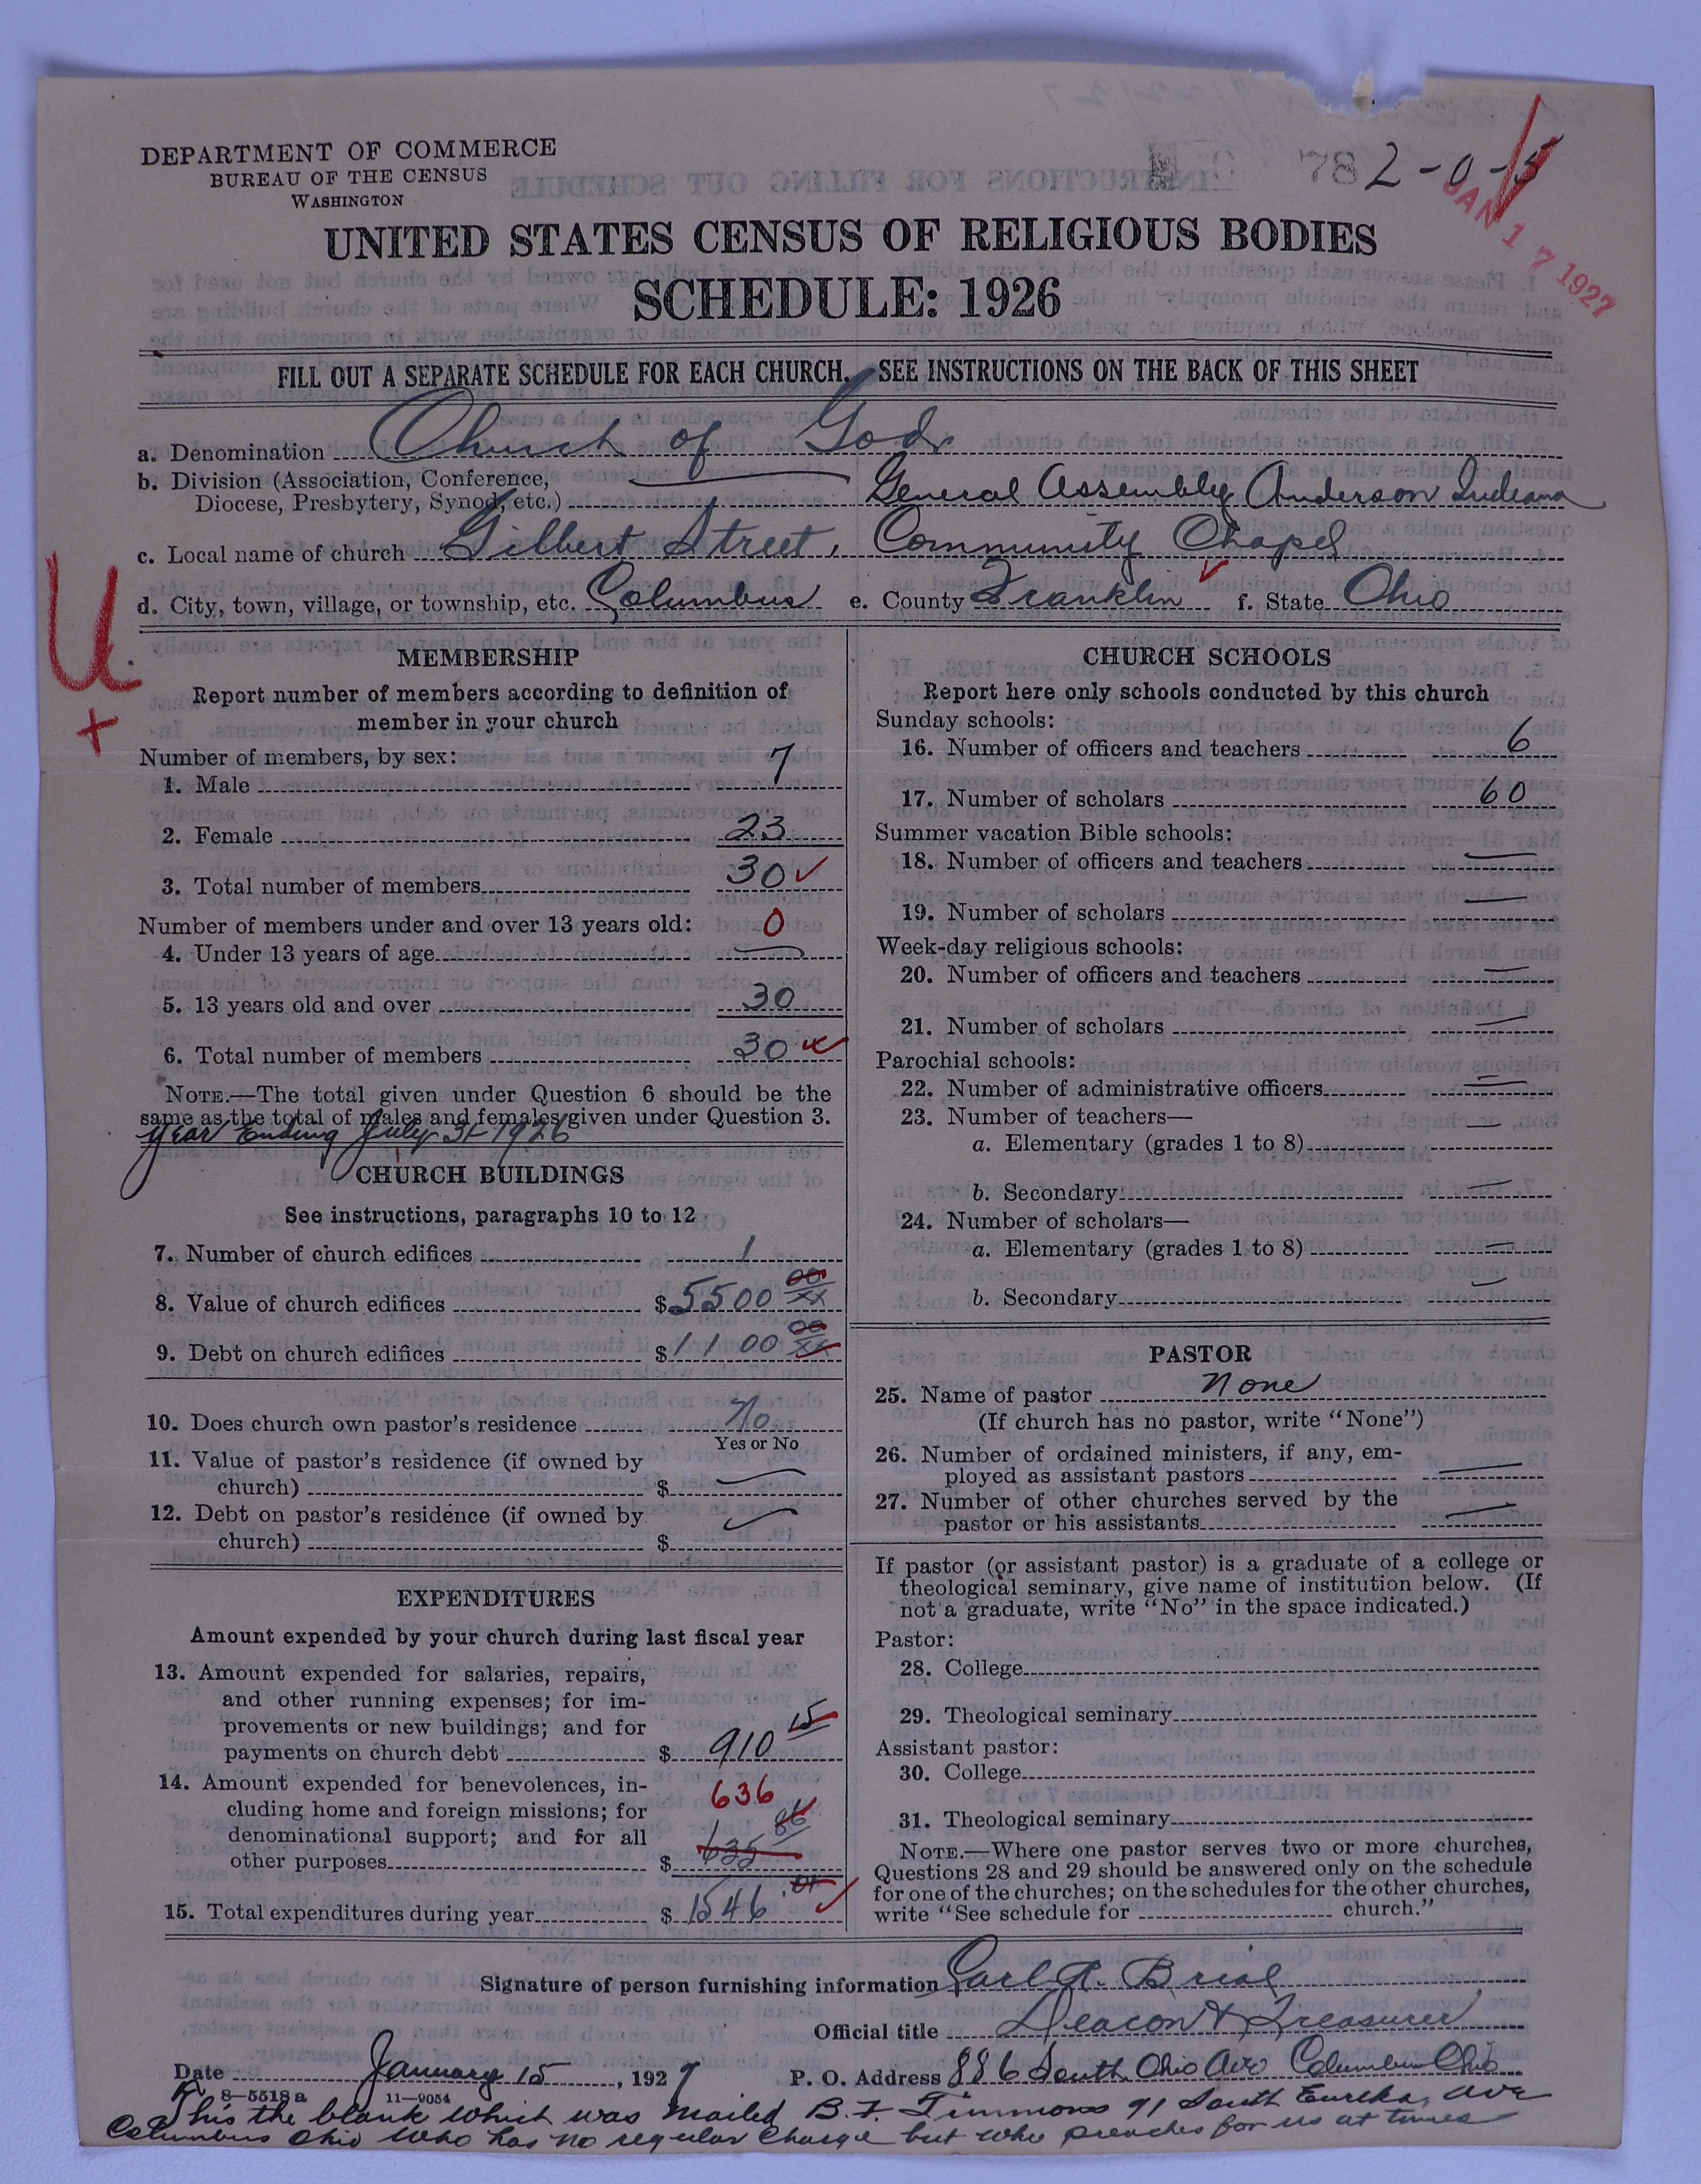 DEPARTMENT OF COMMERCE
BUREAU OF THE CENSUS
WASHINGTON
782-0-5
JAN 17 1927
UNITED STATES CENSUS OF RELIGIOUS BODIES
SCHEDULE: 1926
FILL OUT A SEPARATE SCHEDULE FOR EACH CHURCH. SEE INSTRUCTIONS ON THE BACK OF THIS SHEET
a. Denomination Church of God
b. Division (Association, Conference,
Diocese, Presbytery, Synod, etc.) General Assembly Anderson Indiana
c. Local name of church Gilbert Street, Community Chapel
d. City, town, village, or township, etc. Columbus e. County Franklin f. State Ohio
U
+
MEMBERSHIP
Report number of members according to definition of
member in your church
Number of members, by sex:
1. Male 7
2. Female 23
3. Total number of members 30
Number of members under and over 13 years old: 0
4. Under 13 years of age —
5. 13 years old and over 30
6. Total number of members 30
NOTE.—The total given under Question 6 should be the
same as the total of males and females given under Question 3.
Year Ending July 31 1926
CHURCH BUILDINGS
See instructions, paragraphs 10 to 12
7. Number of church edifices 1
8. Value of church edifices $5500 00/xx
9. Debt on church edifices $1100 00/xx
10. Does church own pastor's residence No
Yes or No
11. Value of pastor's residence (if owned by
church) $ —
12. Debt on pastor's residence (if owned by
church) $ —
EXPENDITURES
Amount expended by your church during last fiscal year
13. Amount expended for salaries, repairs,
and other running expenses; for im-
provements or new buildings; and for
payments on church debt $ 910 15
14. Amount expended for benevolences, in- 636
cluding home and foreign missions; for
denominational support; and for all
other purposes $ 635 86
15. Total expenditures during year $ 1546.01
CHURCH SCHOOLS
Report here only schools conducted by this church
Sunday schools:
16. Number of officers and teachers 6
17. Number of scholars 60
Summer vacation Bible schools:
18. Number of officers and teachers —
19. Number of scholars —
Week-day religious schools:
20. Number of officers and teachers —
21. Number of scholars —
Parochial schools:
22. Number of administrative officers —
23. Number of teachers—
a. Elementary (grades 1 to 8) —
b. Secondary —
24. Number of scholars—
a. Elementary (grades 1 to 8) —
b. Secondary —
PASTOR
25. Name of pastor None
(If church has no pastor, write "None")
26. Number of ordained ministers, if any, em-
ployed as assistant pastors —
27. Number of other churches served by the
pastor or his assistants —
If pastor (or assistant pastor) is a graduate of a college or
theological seminary, give name of institution below. (If
not a graduate, write "No" in the space indicated.)
Pastor:
28. College
29. Theological seminary
Assistant pastor:
30. College
31. Theological seminary
NOTE.—Where one pastor serves two or more churches,
Questions 28 and 29 should be answered only on the schedule
for one of the churches; on the schedules for the other churches,
write "See schedule for church."
Signature of person furnishing information Earl A. Brial
Official title Deacon & Treasurer
Date January 15, 1927 P. O. Address 886 South Ohio Ave Columbus Ohio
8—5518 a 11—9054
This the blank which was mailed B. F. Timmons 91 South Eureka, Ave
Columbus Ohio who has no regular charge but who preaches for us at times